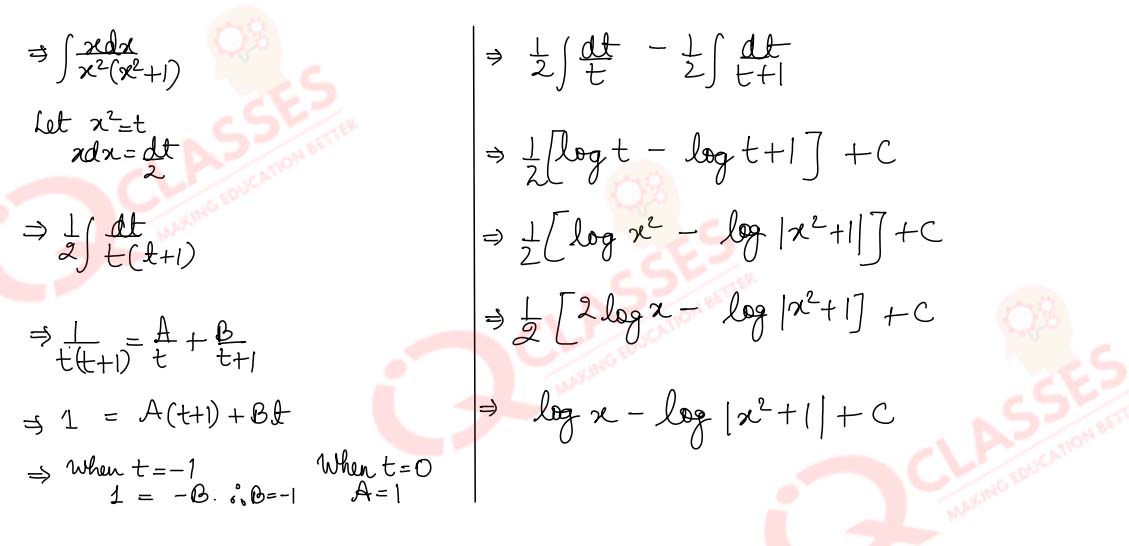 ⇒ ∫ xdx / x²(x²+1)
Let x²=t
xdx = dt/2
⇒ 1/2 ∫ dt / t(t+1)
⇒ 1/t(t+1) = A/t + B/t+1
⇒ 1 = A(t+1) + Bt
⇒ When t=-1 When t=0
1 = -B. ∴B=-1 A=1
⇒ 1/2 ∫ dt/t - 1/2 ∫ dt/t+1
⇒ 1/2 [log t - log t+1] + C
⇒ 1/2 [log x² - log |x²+1|] + C
⇒ 1/2 [2 log x - log |x²+1] + C
⇒ log x - log |x²+1| + C
iQ CLASSES
MAKING EDUCATION BETTER
iQ CLASSES
MAKING EDUCATION BETTER
iQ CLASSES
MAKING EDUCATION BETTER